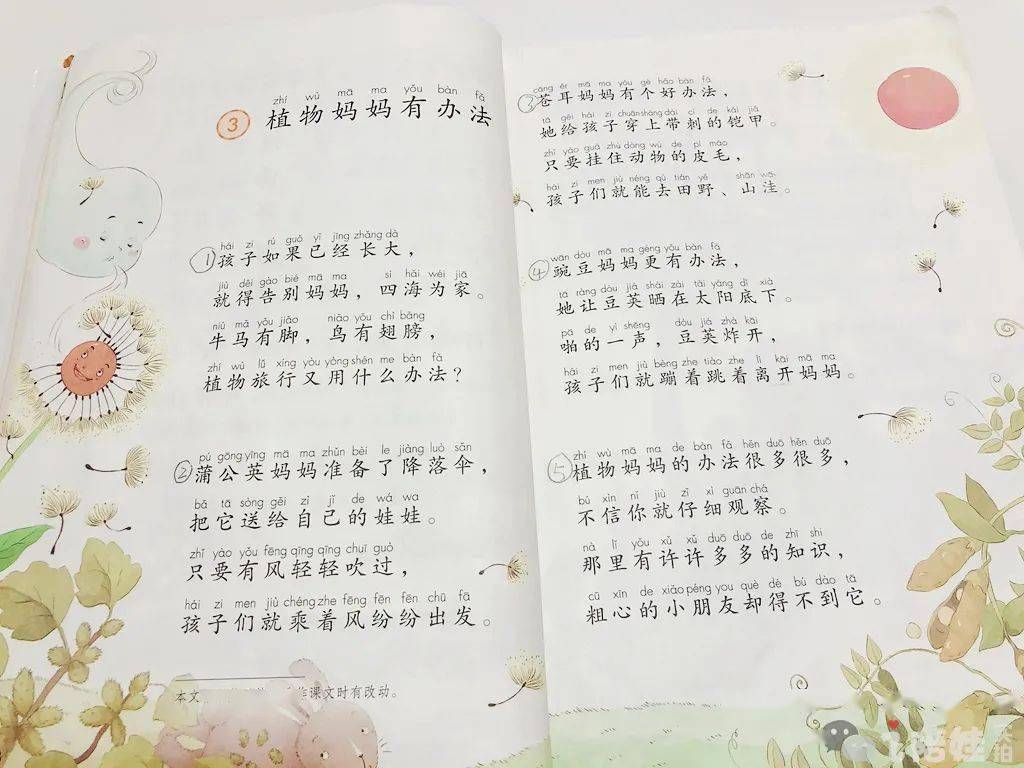 zhí wù mā ma yǒu bàn fǎ
③ 植物妈妈有办法
hái zi rú guǒ yǐ jīng zhǎng dà
①孩子如果已经长大，
jiù děi gào bié mā ma sì hǎi wéi jiā
就得告别妈妈，四海为家。
niú mǎ yǒu jiǎo niǎo yǒu chì bǎng
牛马有脚，鸟有翅膀，
zhí wù lǚ xíng yòu yòng shén me bàn fǎ
植物旅行又用什么办法？
pú gōng yīng mā ma zhǔn bèi le jiàng luò sǎn
②蒲公英妈妈准备了降落伞，
bǎ tā sòng gěi zì jǐ de wá wa
把它送给自己的娃娃。
zhǐ yào yǒu fēng qīng qīng chuī guò
只要有风轻轻吹过，
hái zi men jiù chéng zhe fēng fēn fēn chū fā
孩子们就乘着风纷纷出发。
本文
作课文时有改动。
cāng ěr mā ma yǒu gè hǎo bàn fǎ
③苍耳妈妈有个好办法，
tā gěi hái zi chuān shàng dài cì de kǎi jiǎ
她给孩子穿上带刺的铠甲。
zhǐ yào guà zhù dòng wù de pí máo
只要挂住动物的皮毛，
hái zi men jiù néng qù tián yě shān wā
孩子们就能去田野、山洼。
wān dòu mā ma gèng yǒu bàn fǎ
④豌豆妈妈更有办法，
tā ràng dòu jiá shài zài tài yáng dǐ xià
她让豆荚晒在太阳底下。
pā de yì shēng dòu jiá zhà kāi
啪的一声，豆荚炸开，
hái zi men jiù bèng zhe tiào zhe lí kāi mā ma
孩子们就蹦着跳着离开妈妈。
zhí wù mā ma de bàn fǎ hěn duō hěn duō
⑤植物妈妈的办法很多很多，
bú xìn nǐ jiù zǐ xì guān chá
不信你就仔细观察。
nà lǐ yǒu xǔ xǔ duō duō de zhī shi
那里有许许多多的知识，
cū xīn de xiǎo péng you què dé bú dào tā
粗心的小朋友却得不到它。